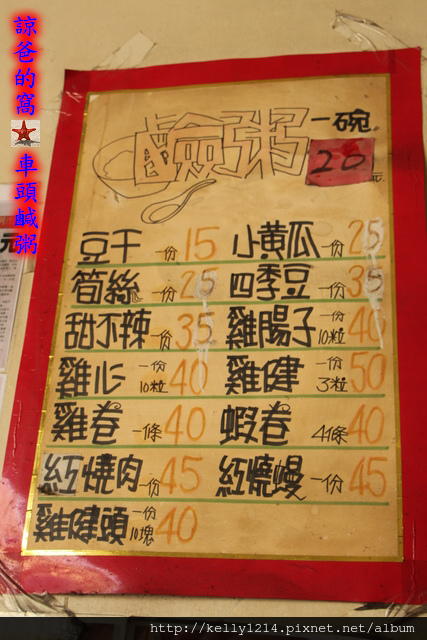 諒爸的窩
車頭鹹粥
鹼粥
一碗
20元
豆干 一份 15
小黄瓜 一份 25
筍絲 一份 25
四季豆 一份 35
甜不辣 一份 35
雞腸子 10粒 40
雞心 一份 10粒 40
雞健 一份 3粒 50
雞卷 一條 40
蝦卷 4條 40
紅燒肉 一份 45
紅燒鰻 一份 45
雞健頭 一份 10塊 40
元
http://kelly1214.pixnet.net/album